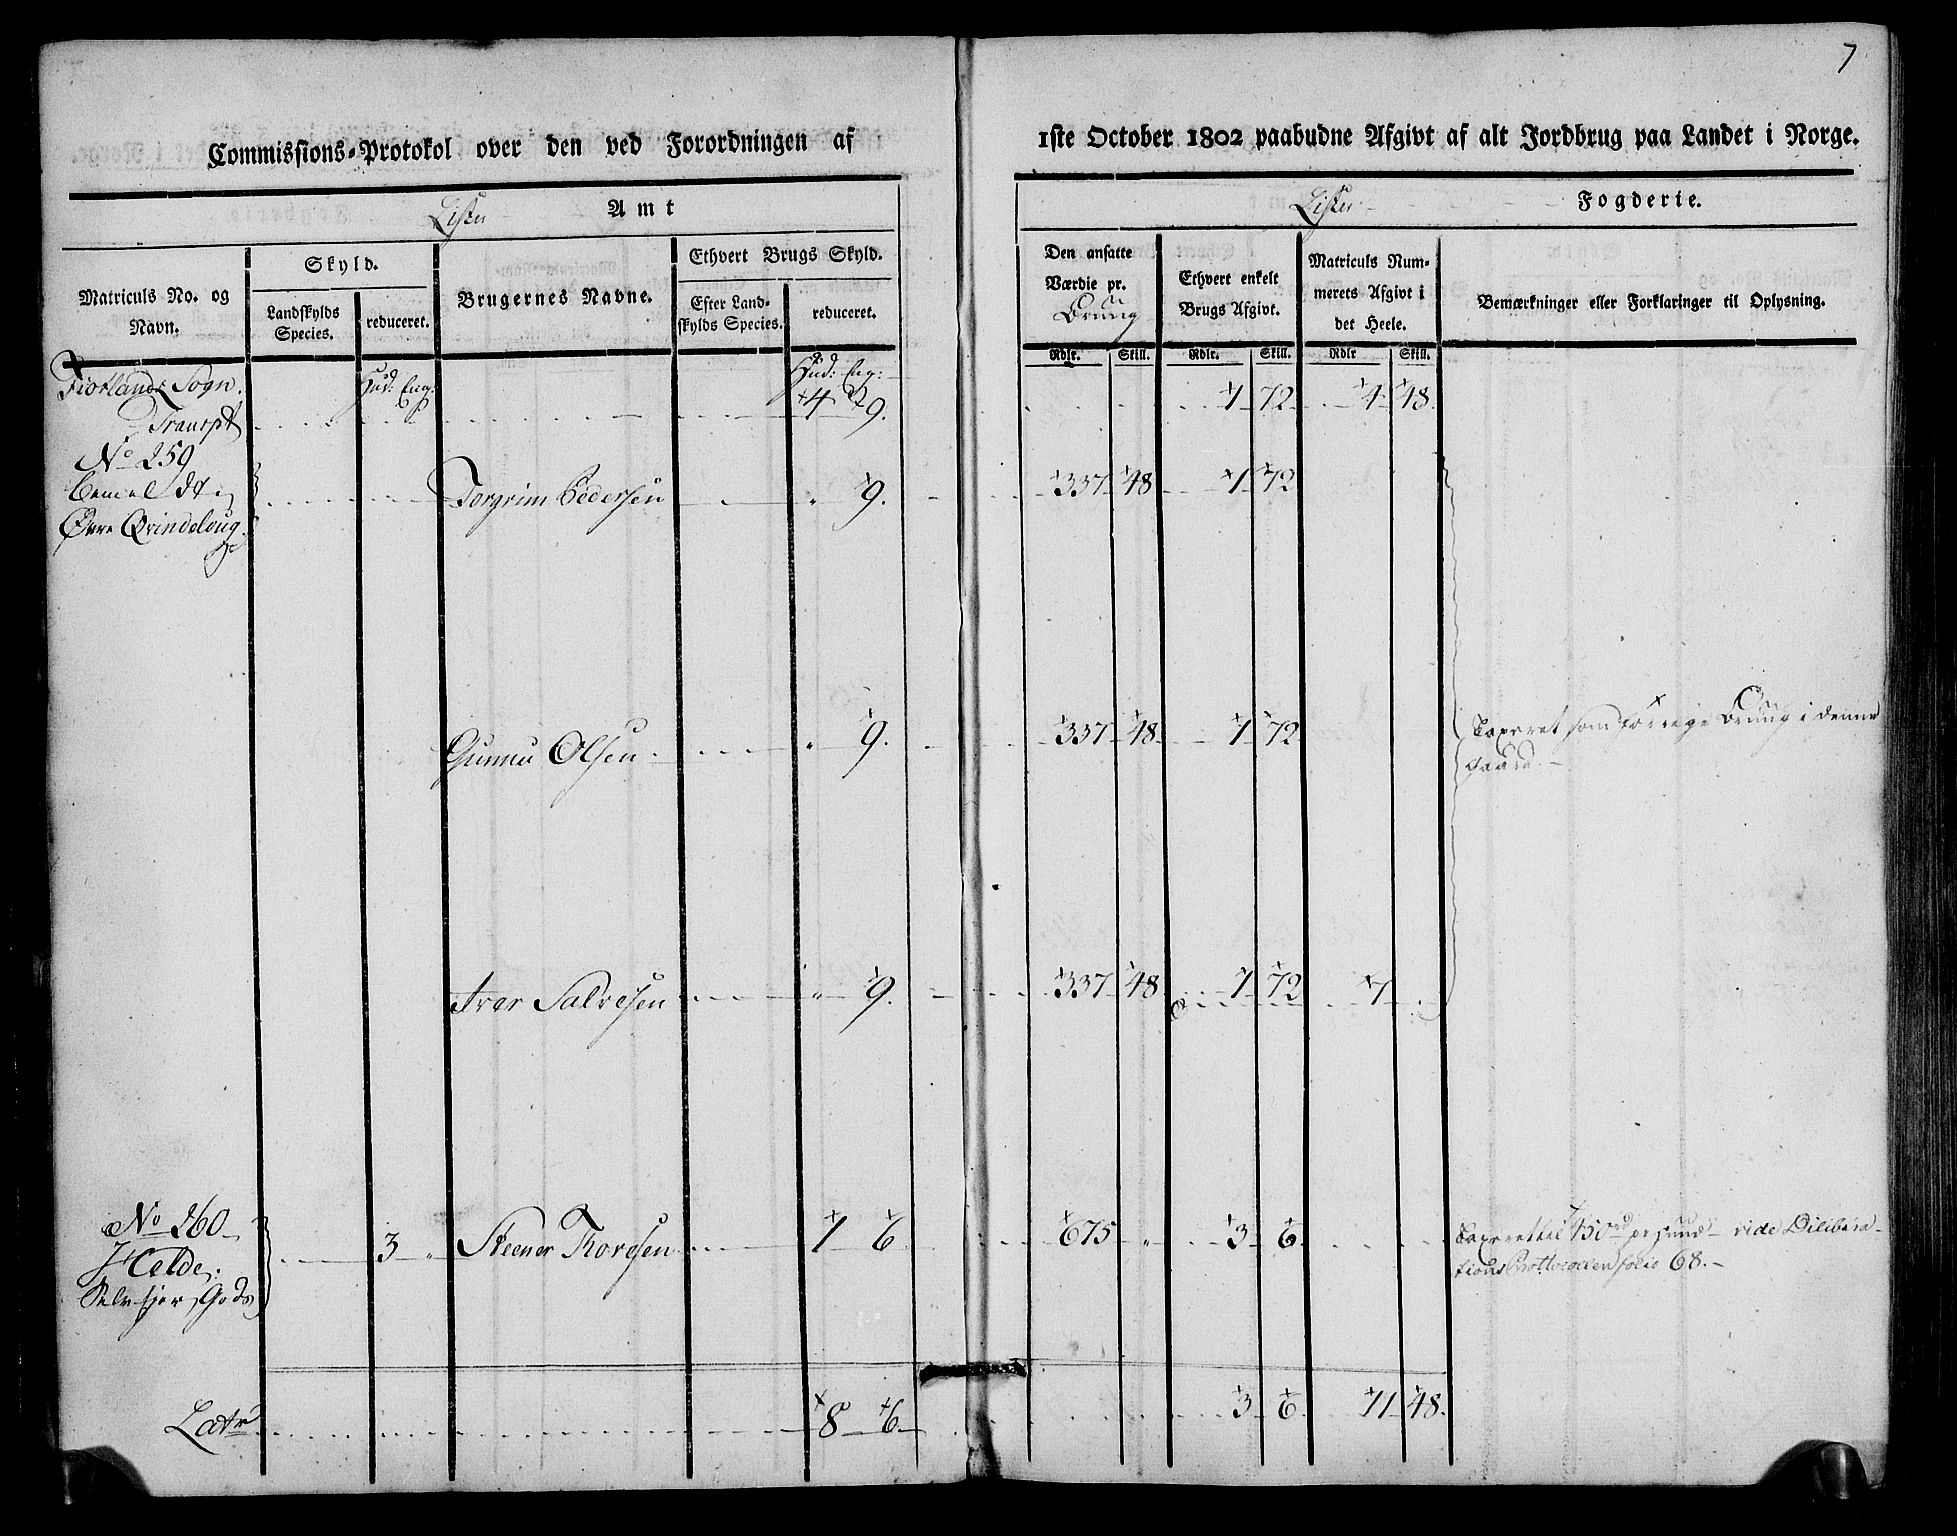 7
Commissions-Protokol over den ved Forordningen af
1ste October 1802 paabudne Afgivt af alt Jordbrug paa Landet i Norge.
Lister Amt
Lister Fogderie.
Matriculs No. og Navn.
Skyld.
Landskylds Species.
reduceret.
Brugernes Navne.
Ethvert Brugs Skyld.
Efter Landskylds Species.
reduceret.
Den ansatte
Værdie pr.
Brug
Ethvert enkelt
Brugs Afgivt.
Matriculs Num-
merets Afgivt i
det Heele.
Bemærkninger eller Forklaringer til Oplysning.
Rdlr. Skill. Rdlr. Skill. Rdlr Skill.
Fiotlands Sogn. Hud: Eng: Hud: Eng:
Transpt 4 9. 1 72 4 48.
No 259
Torgrim Pedersen " 9. 337 48 1 72
Øvre Qvindeloug
Gunnu Olsen " 9. 337 48 1 72 Taxeret som forrige Brug i denne
Gaard.
Iver Salvesen " 9. 337 48 1 72 7
No 260 3 " Steener Thoresen 1 6 675 " 3 6 Taxeret til 450rd pr hund vide Delibera-
Helde. tions Prottocollen folio 68.
Selveier Gods
Latr 8 6 3 6 11 48.